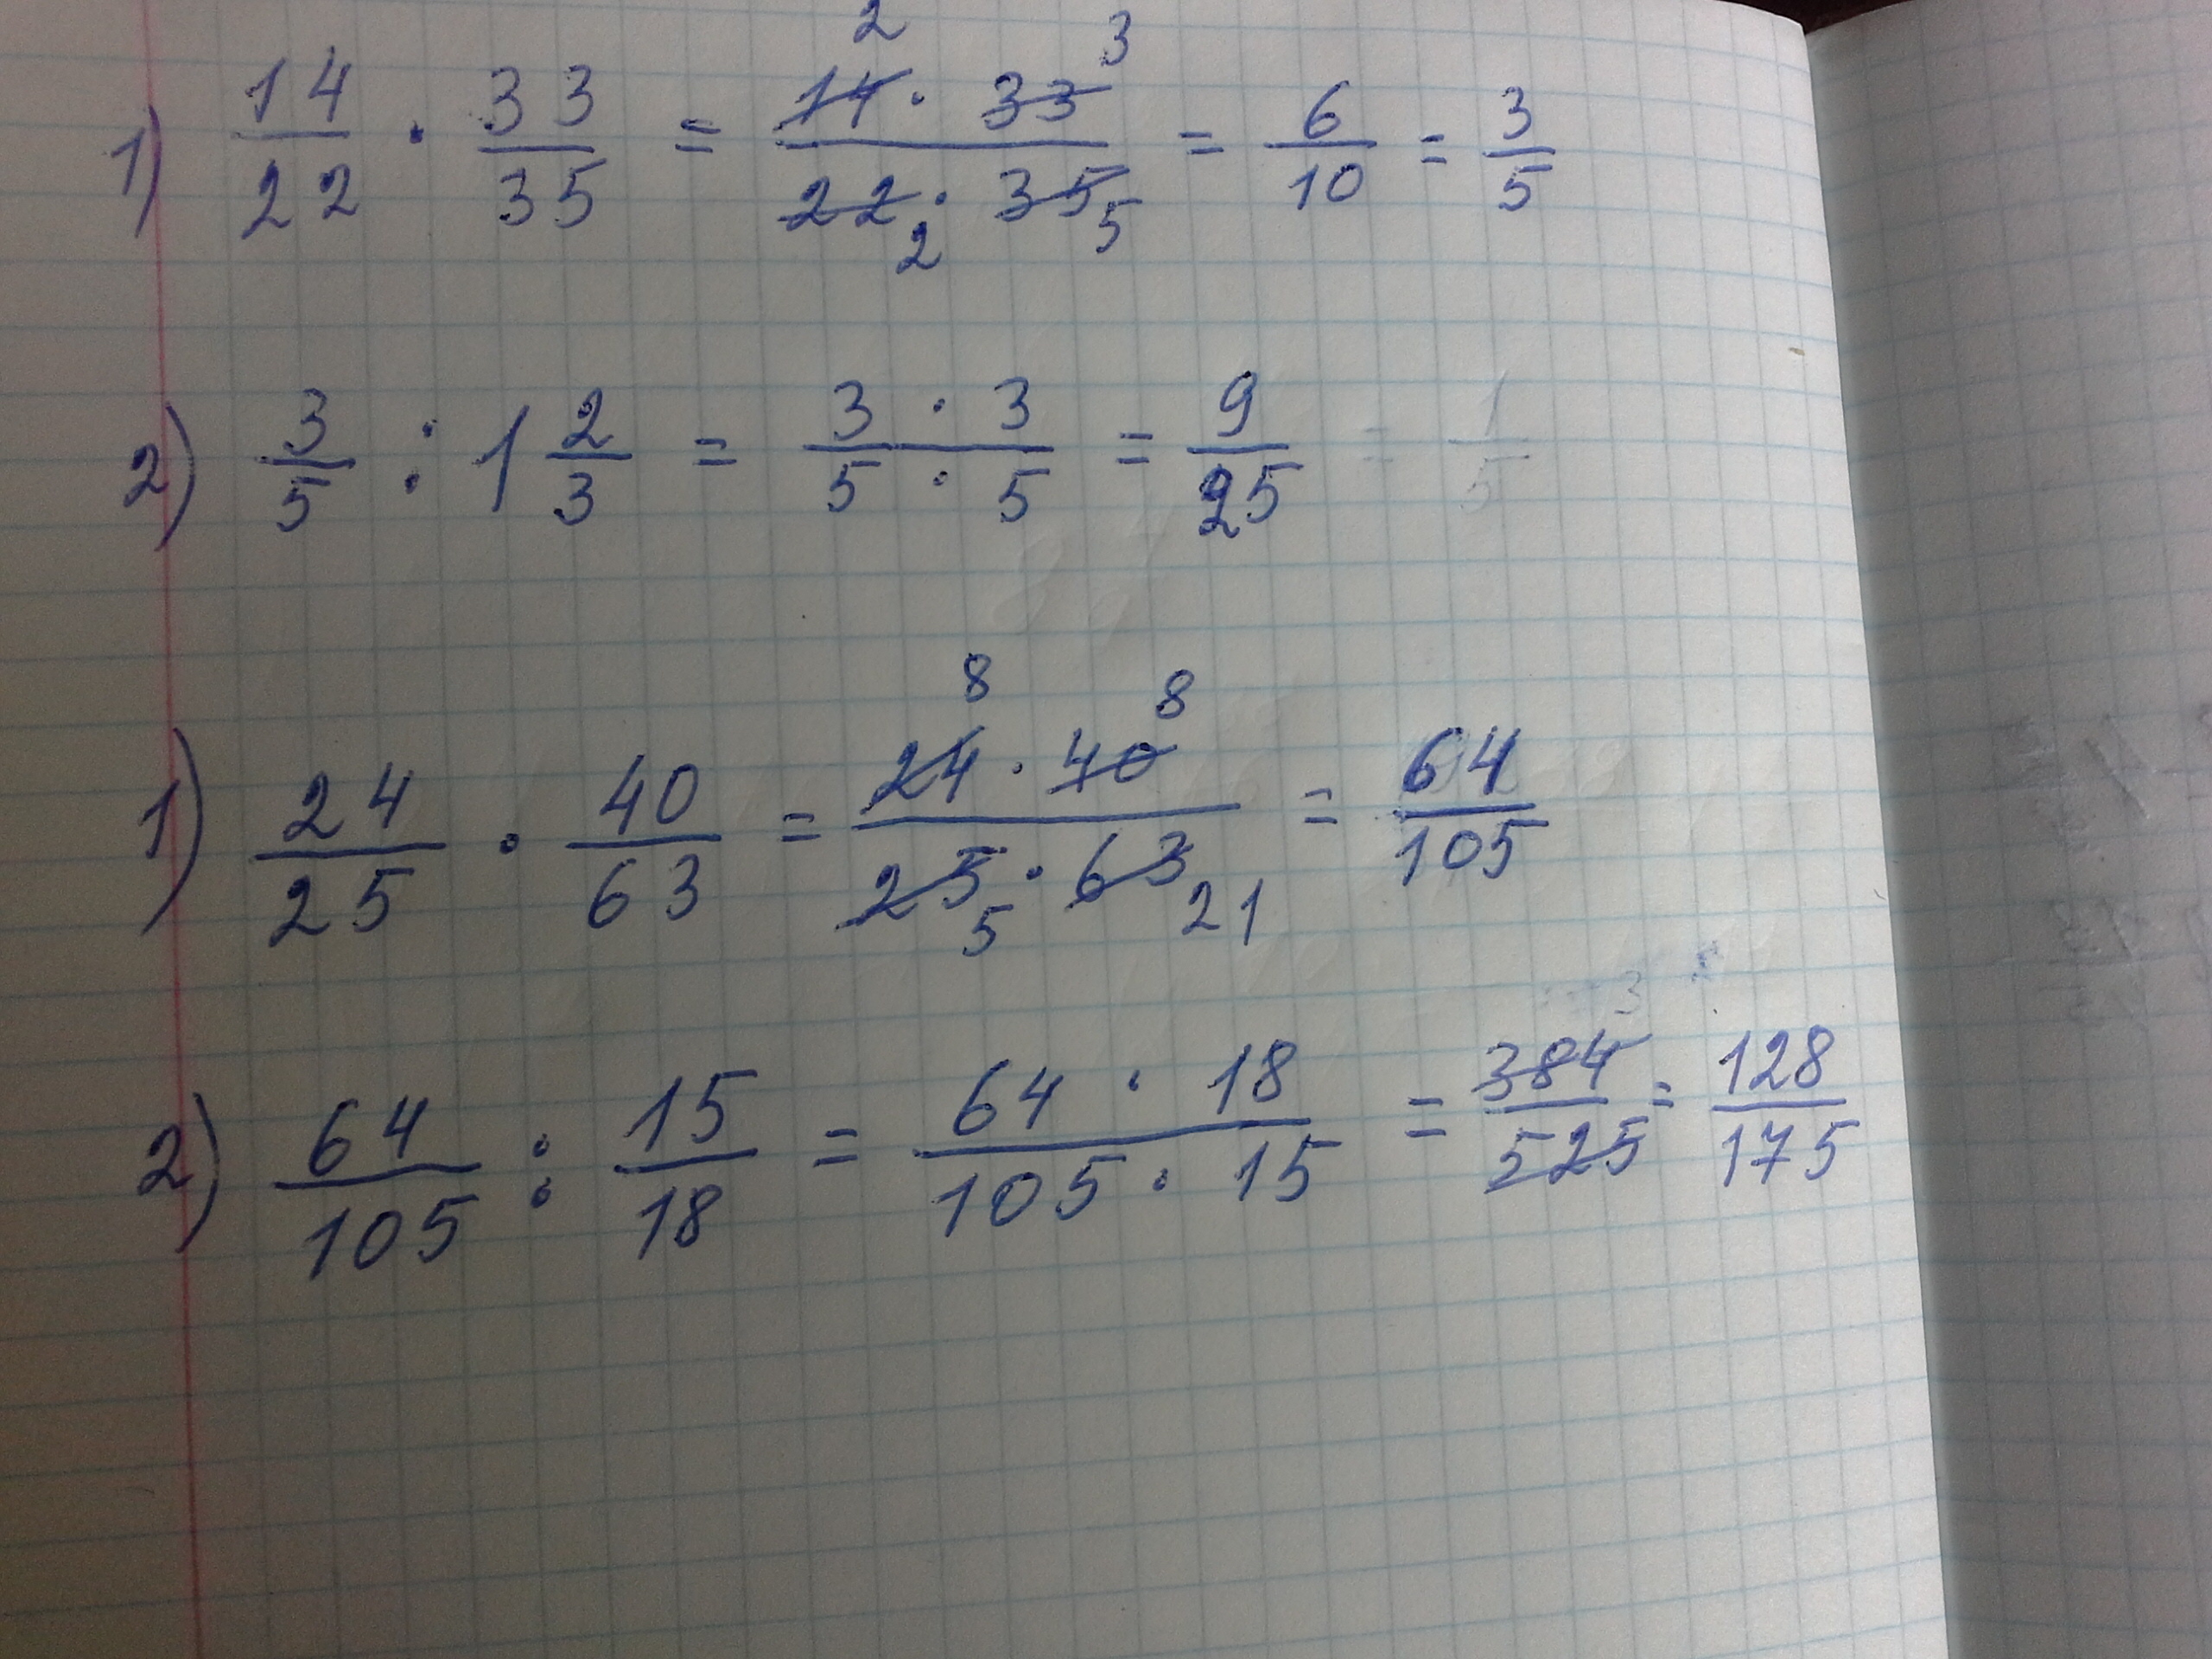 1) 14/22 · 33/35 = 14 2 · 33 3 / 22 2 · 35 5 = 6/10 = 3/5
2) 3/5 : 1 2/3 = 3 · 3 / 5 · 5 = 9/25 = 1/5
1) 24/25 · 40/63 = 24 8 · 40 8 / 25 5 · 63 21 = 64/105
2) 64/105 : 15/18 = 64 · 18 / 105 · 15 = 384/525 = 128/175